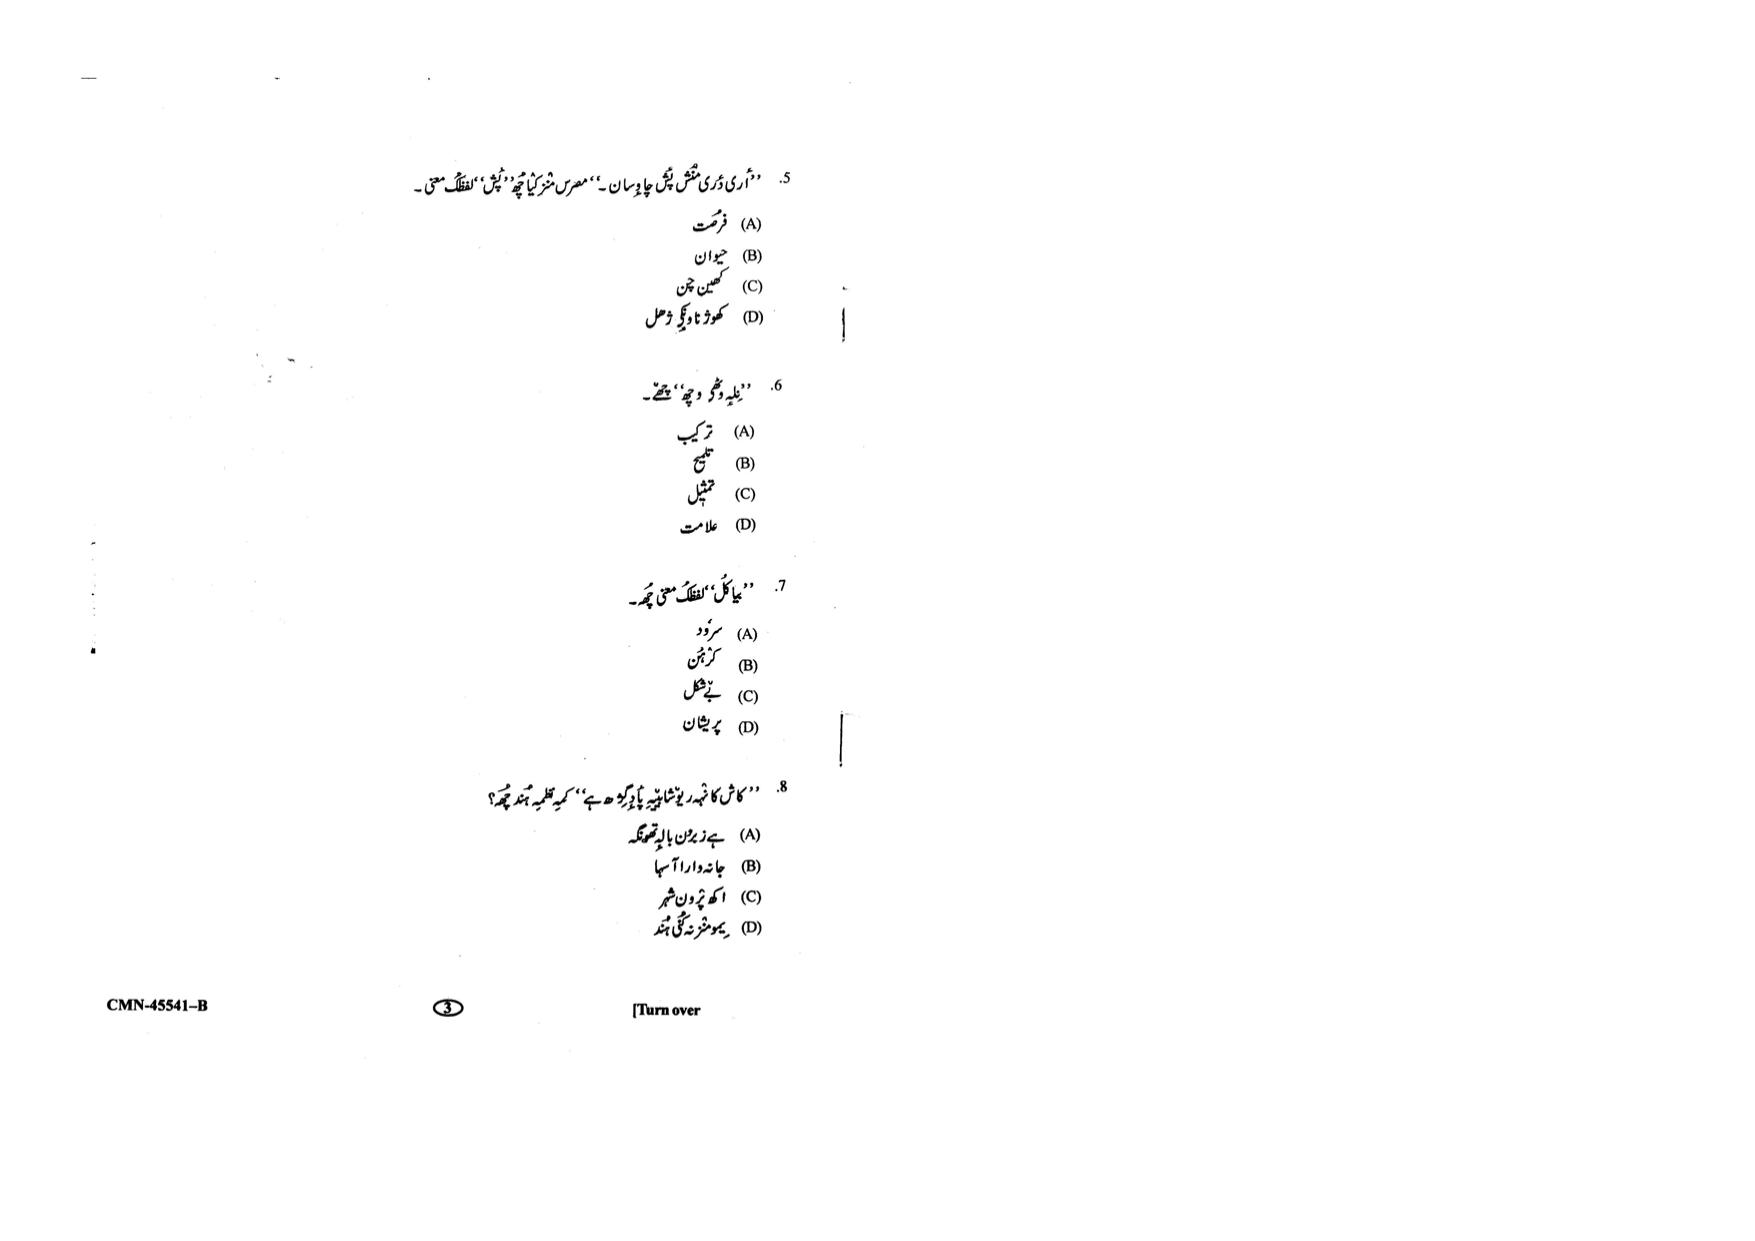 5. ’’أرى دٔرى مٔنٛش پٔش چاوِسان۔‘‘ مصرس منٛز کیٛا چھُ ’’پٔش‘‘ لفظُک معنی۔
(A) فرصت
(B) حیوان
(C) کھین چن
(D) کھوژناونٕکۍ ژھل
6. ’’نِلہٕ وٹھۍ وچھ‘‘ چھےٚ۔
(A) ترکیب
(B) تلمیح
(C) تمثیل
(D) علامت
7. ’’بیاکُل‘‘ لفظُک معنی چھُ۔
(A) سرود
(B) کرٛہُن
(C) بےٚ شکل
(D) پریشان
8. ’’کاش کانٛہہ ر یوٚشاہ پیٚیہِ پأدٕ گوٚژھ ہے‘‘ کمہِ نظمہِ ہُنٛد چھُ؟
(A) ہے زبرون بالہٕ تھونگہ
(B) جانہ وارا آسہا
(C) اکھ پرٛون شہر
(D) یِمو منٛز نہ کُنی ہُنٛد
CMN-45541–B
3
[Turn over